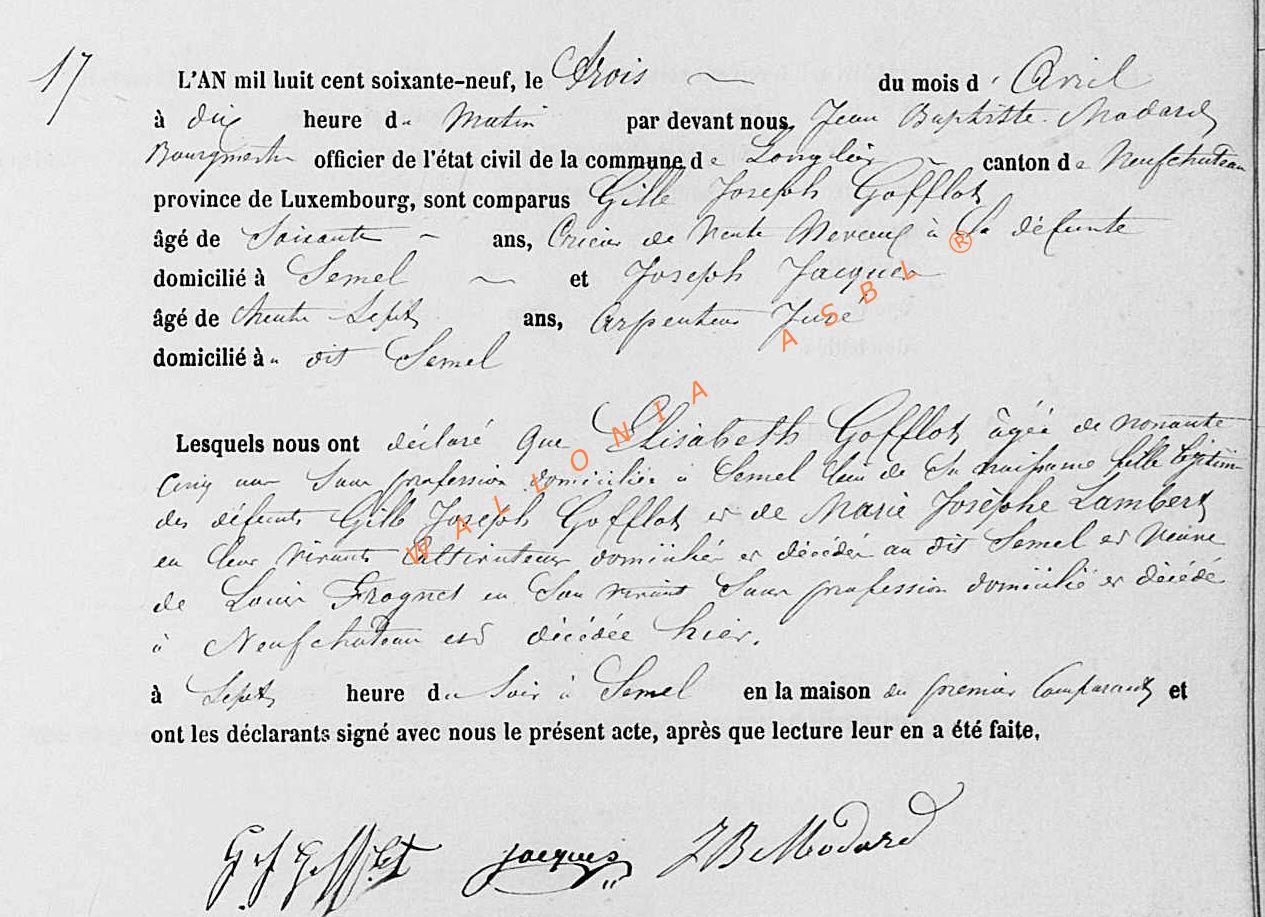 17
L'AN mil huit cent soixante-neuf, le Trois du mois d'Avril
à dix heure du Matin par devant nous, Jean Baptiste Modard
Bourgmestre officier de l'état civil de la commune de Longlier canton de Neufchateau
province de Luxembourg, sont comparus Gille Joseph Gofflot
âgé de Soixante ans, Crieur de Vente Neveux à La défunte
domicilié à Semel et Joseph Jacques
âgé de trente Sept ans, Arpenteur Juré
domicilié à u dit Semel
Lesquels nous ont déclaré que Elisabeth Gofflot âgée de nonante
Cinq ans Sans profession domiciliée à Semel lieu de Sa naissance fille légitime
des défunts Gille Joseph Gofflot et de Marie Josèphe Lambert
en leur vivants Cultivateurs domiciliés et décédés au dit Semel et Veuve
de Louis Frognet en Son vivant Sans profession domicilié et décédé
à Neufchateau est décédée hier,
à Sept heure du Soir à Semel en la maison du premier Comparant et
ont les déclarants signé avec nous le présent acte, après que lecture leur en a été faite.
G J Gofflot Jacques JB Modard
WALLONIA ASBL ®